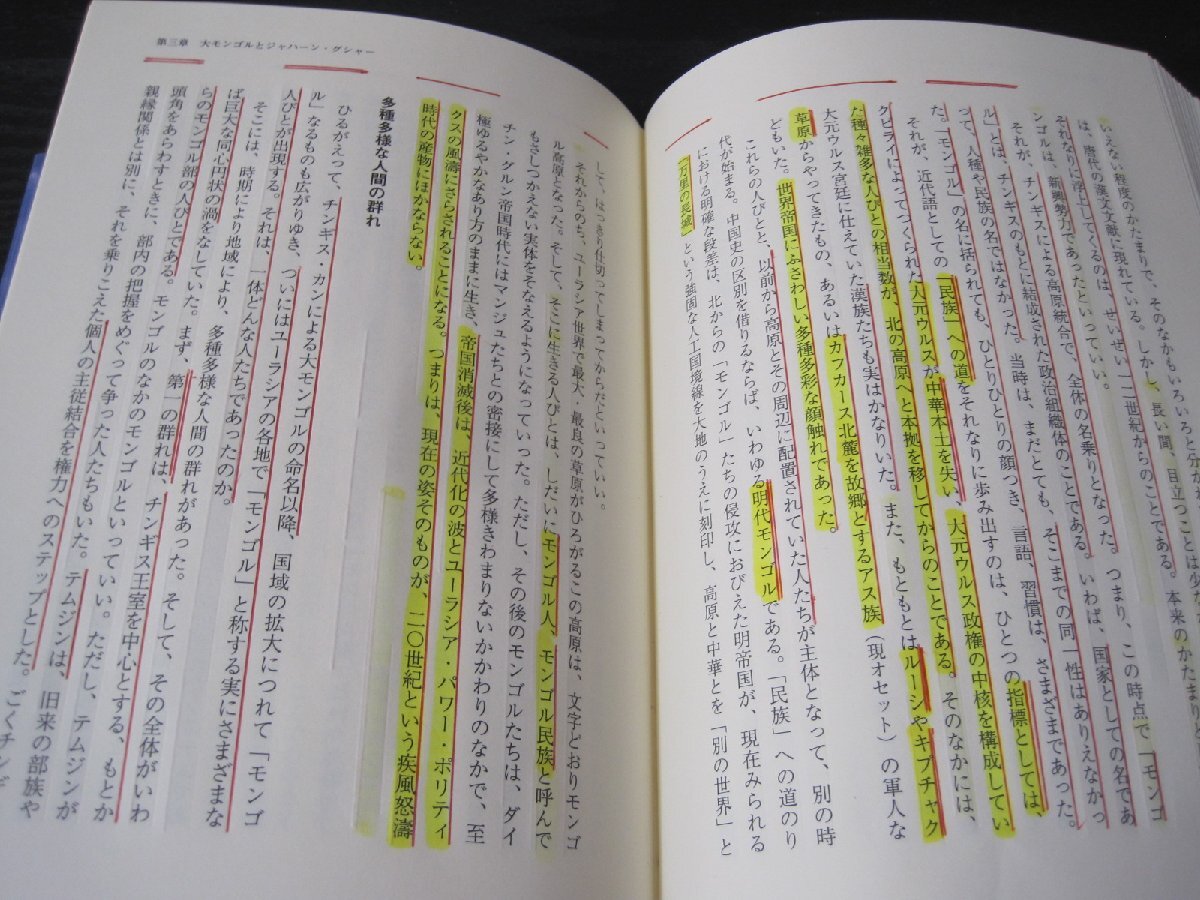 いえない程度のかたまりで、そのなかもいろいろと分か
は、唐代の漢文文献に現れている。しかし、長い間、目立つことは少な
それなりに浮上してくるのは、せいぜい一二世紀からのことである。本来のかたまりと
ンゴルは、新興勢力であったといっていい。
それが、チンギスによる高原統合で、全体の名乗りとなった。つまり、この時点で「モンゴ
ル」とは、チンギスのもとに結成された政治組織体のことである。いわば、国家としての名であ
って、人種や民族の名ではなかった。当時は、まだとても、そこまでの同一性はありえなかっ
た。「モンゴル」の名に括られても、ひとりひとりの顔つき、言語、習慣は、さまざまであった。
それが、近代語としての「民族」への道をそれなりに歩み出すのは、ひとつの指標としては、
クビライによってつくられた大元ウルスが中華本土を失い、大元ウルス政権の中核を構成してい
た種々雑多な人びとの相当数が、北の高原へと本拠を移してからのことである。そのなかには、
大元ウルス宮廷に仕えていた漢族たちも実はかなりいた。また、もともとはルーシやキプチャク
草原からやってきたもの、あるいはカフカース北麓を故郷とするアス族（現オセット）の軍人な
どもいた。世界帝国にふさわしい多種多彩な顔触れであった。
これらの人びとと、以前から高原とその周辺に配置されていた人たちが主体となって、別の時
代が始まる。中国史の区別を借りるならば、いわゆる明代モンゴルである。「民族」への道のり
における明確な段差は、北からの「モンゴル」たちの侵攻におびえた明帝国が、現在みられる
「万里の長城」という強固な人工国境線を大地のうえに刻印し、高原と中華とを「別の世界」と
第三章 大モンゴルとジャハーン・グシャー
して、はっきり仕切ってしまってからだといっていい。
それからのち、ユーラシア世界で最大・最良の草原がひろがるこの高原は、文字どおりモンゴ
ル高原となった。そして、そこに生きる人びとは、しだいにモンゴル人、モンゴル民族と呼んで
もさしつかえない実体をそなえるようになっていった。ただし、その後のモンゴルたちは、ダイ
チン・グルン帝国時代にはマンジュたちとの密接にして多様きわまりないかかわりのなかで、至
極ゆるやかなあり方のままに生き、帝国消滅後は、近代化の波とユーラシア・パワー・ポリティ
クスの風濤にさらされることになる。つまりは、現在の姿そのものが、二〇世紀という疾風怒濤
時代の産物にほかならない。
多種多様な人間の群れ
ひるがえって、チンギス・カンによる大モンゴルの命名以降、国域の拡大につれて「モンゴ
ル」なるものも広がりゆき、ついにはユーラシアの各地で「モンゴル」と称する実にさまざまな
人びとが出現する。それは、一体どんな人たちであったのか。
そこには、時期により地域により、多種多様な人間の群れがあった。そして、その全体がいわ
ば巨大な同心円状の渦をなしていた。まず、第一の群れは、チンギス王室を中心とする、もとか
らのモンゴル部の人びとである。モンゴルのなかのモンゴルといっていい。ただし、テムジンが
頭角をあらわすときに、部内の把握をめぐって争った人たちもいた。テムジンは、旧来の部族や
親縁関係とは別に、それを乗りこえた個人の主従結合を権力へのステップとした。ごくチンギ